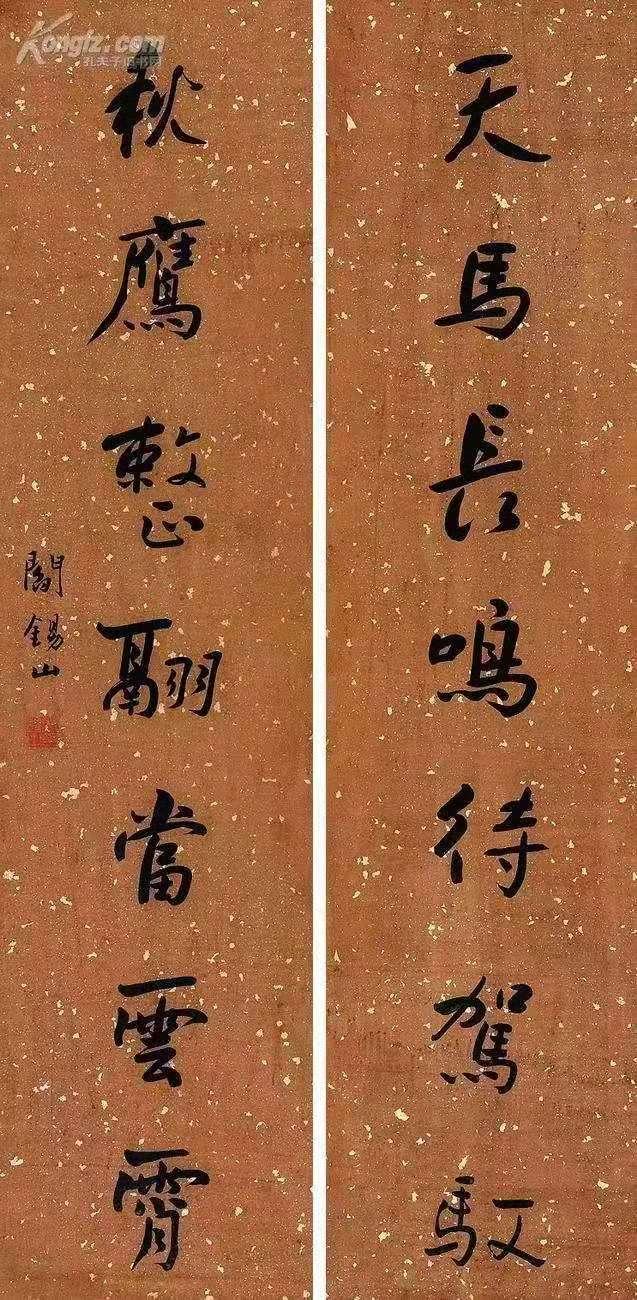 天馬長鳴待駕馭
秋鷹整翮當雲霄
閻錫山
Kongfz.com
孔夫子旧书网